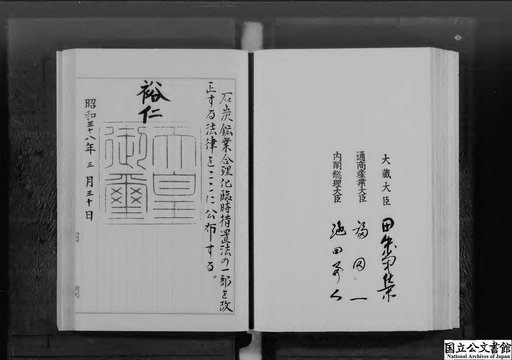 大蔵大臣 田中角榮
通商産業大臣 福田一
内閣総理大臣 池田勇人
石炭鉱業合理化臨時措置法の一部を改
正する法律をここに公布する。
裕仁
天皇
御璽
昭和三十八年三月三十日
国立公文書館
National Archives of Japan